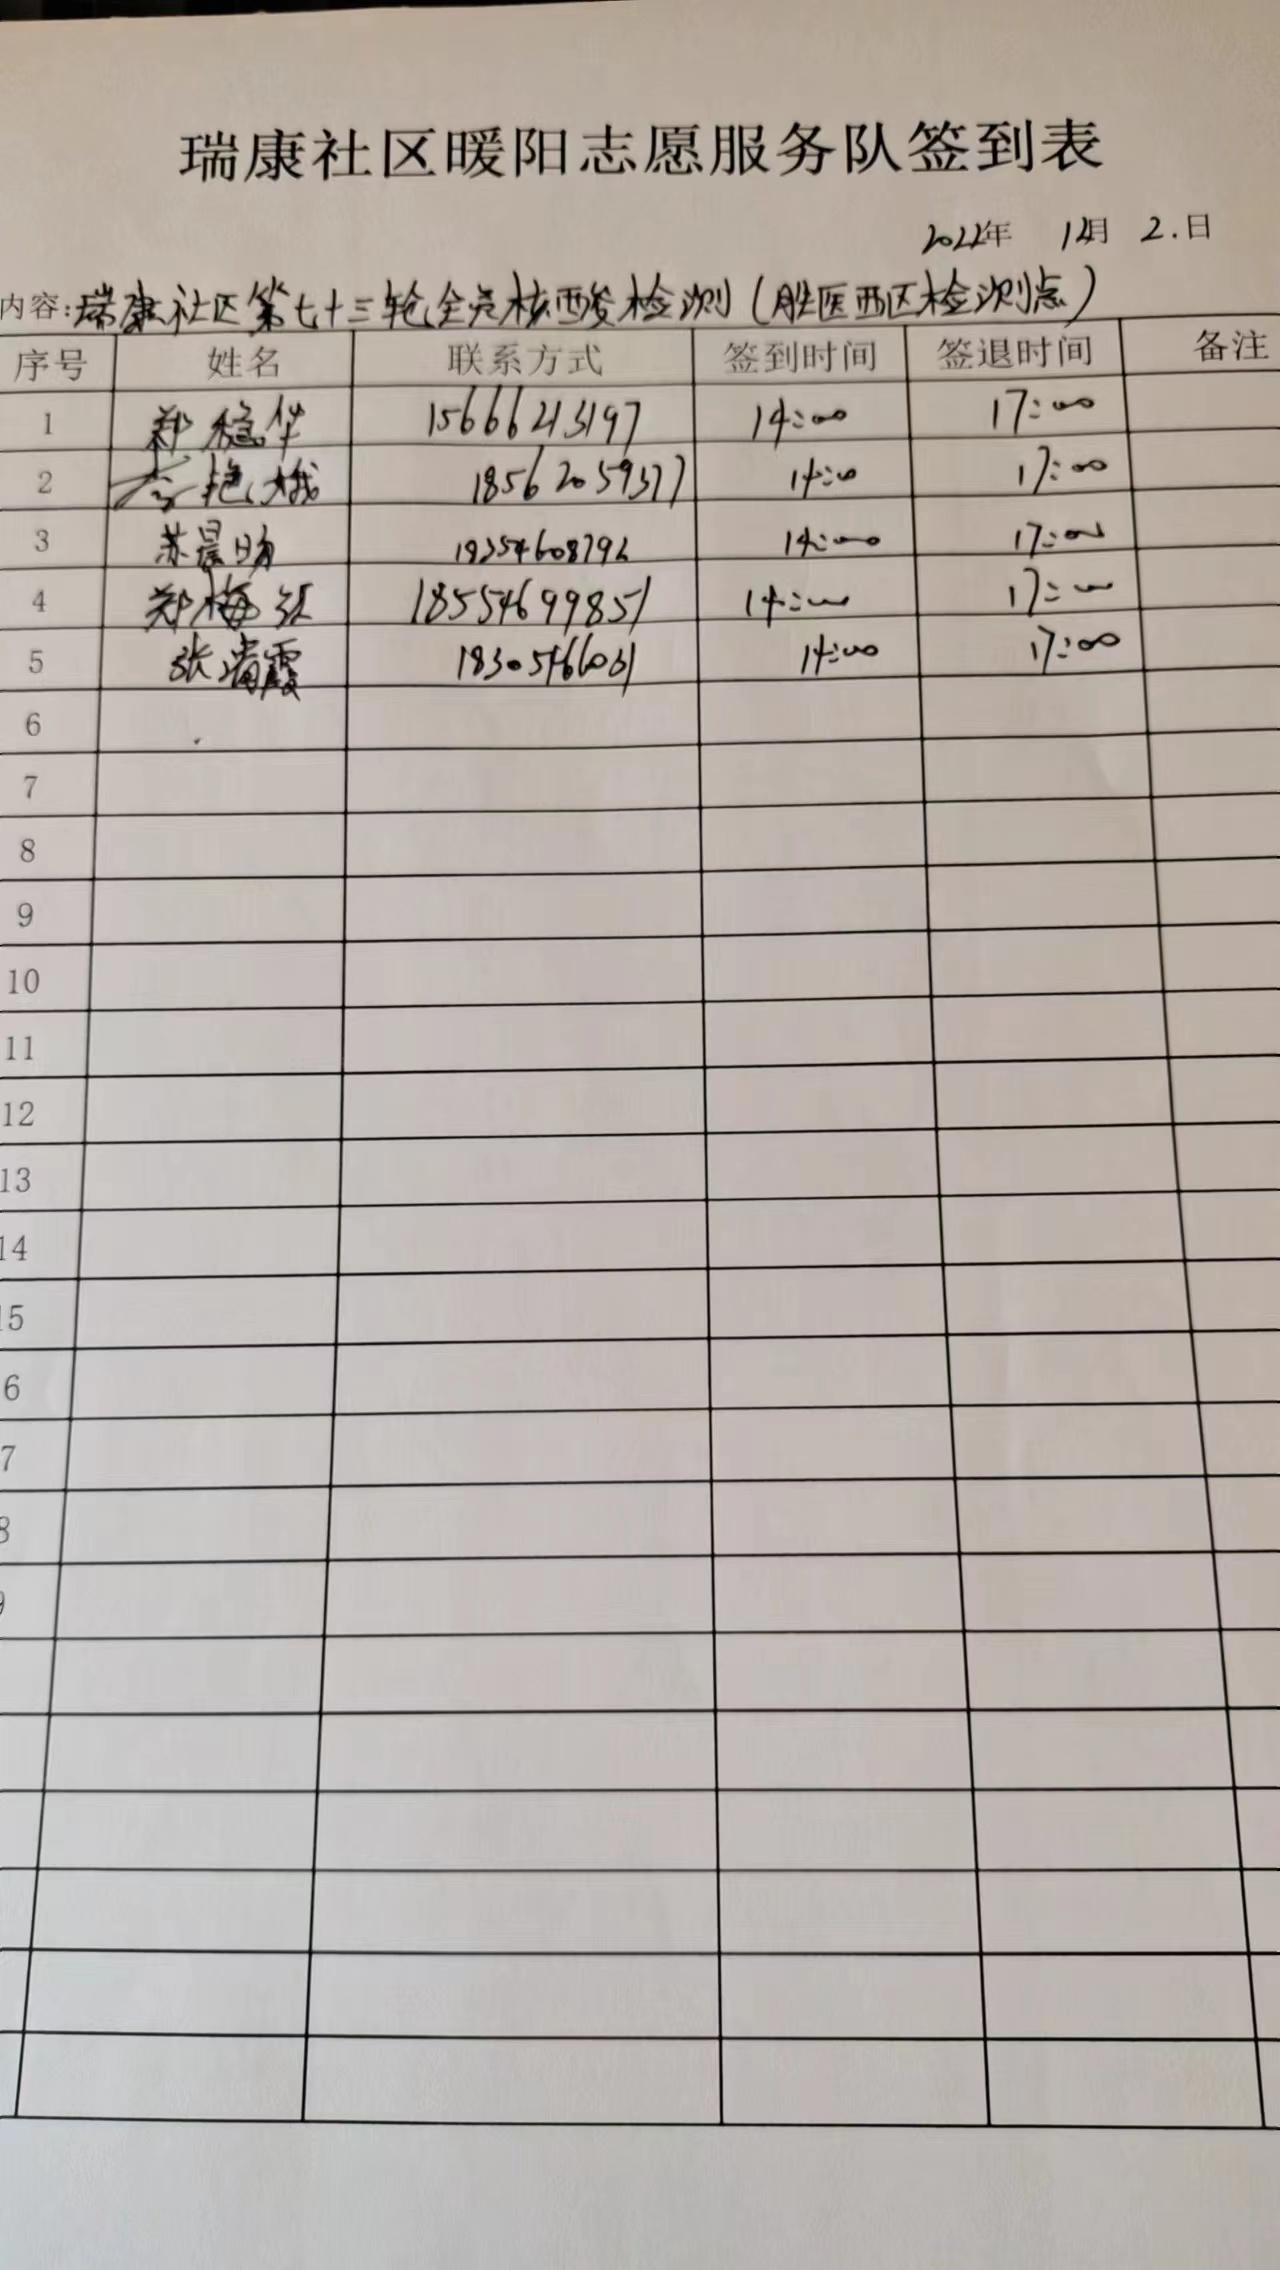 瑞康社区暖阳志愿服务队签到表
2022年 12月 2.日
内容:瑞康社区第七十三轮全员核酸检测(胜医西区检测点)
序号 姓名 联系方式 签到时间 签退时间 备注
1 郑稳华 15666213197 14:00 17:00
2 李艳娥 18562059377 14:00 17:00
3 苏晨旸 14:00 17:00
4 郑梅红 18554699851 14:00 17:00
5 张瑞霞 18305466031 14:00 17:00
6
7
8
9
10
11
12
13
14
15
6
7
8
9